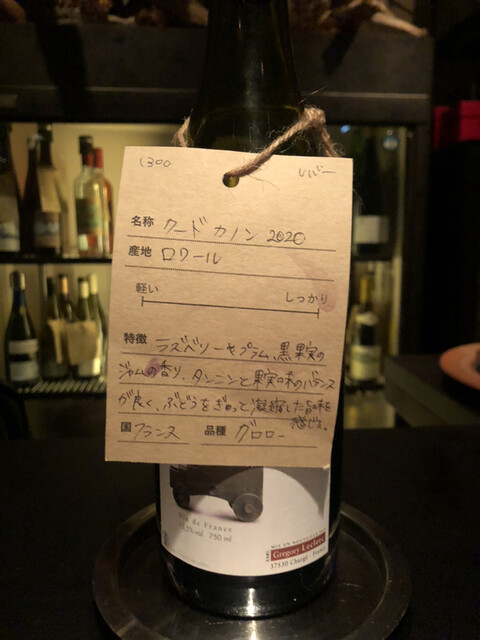 1300
名称 クードカノン 2020
産地 ロワール
軽い しっかり
特徴 ラズベリーやプラム、黒果実の
ジャムの香り。タンニンと果実味のバランス
が良く、ぶどうをぎゅっと凝縮した旨味を
感じる。
国 フランス 品種 グロロー
Vin de France
750 ml
MIS EN BOUTEILLE PAR
Gregory Leclerc
37530 Chargé - France